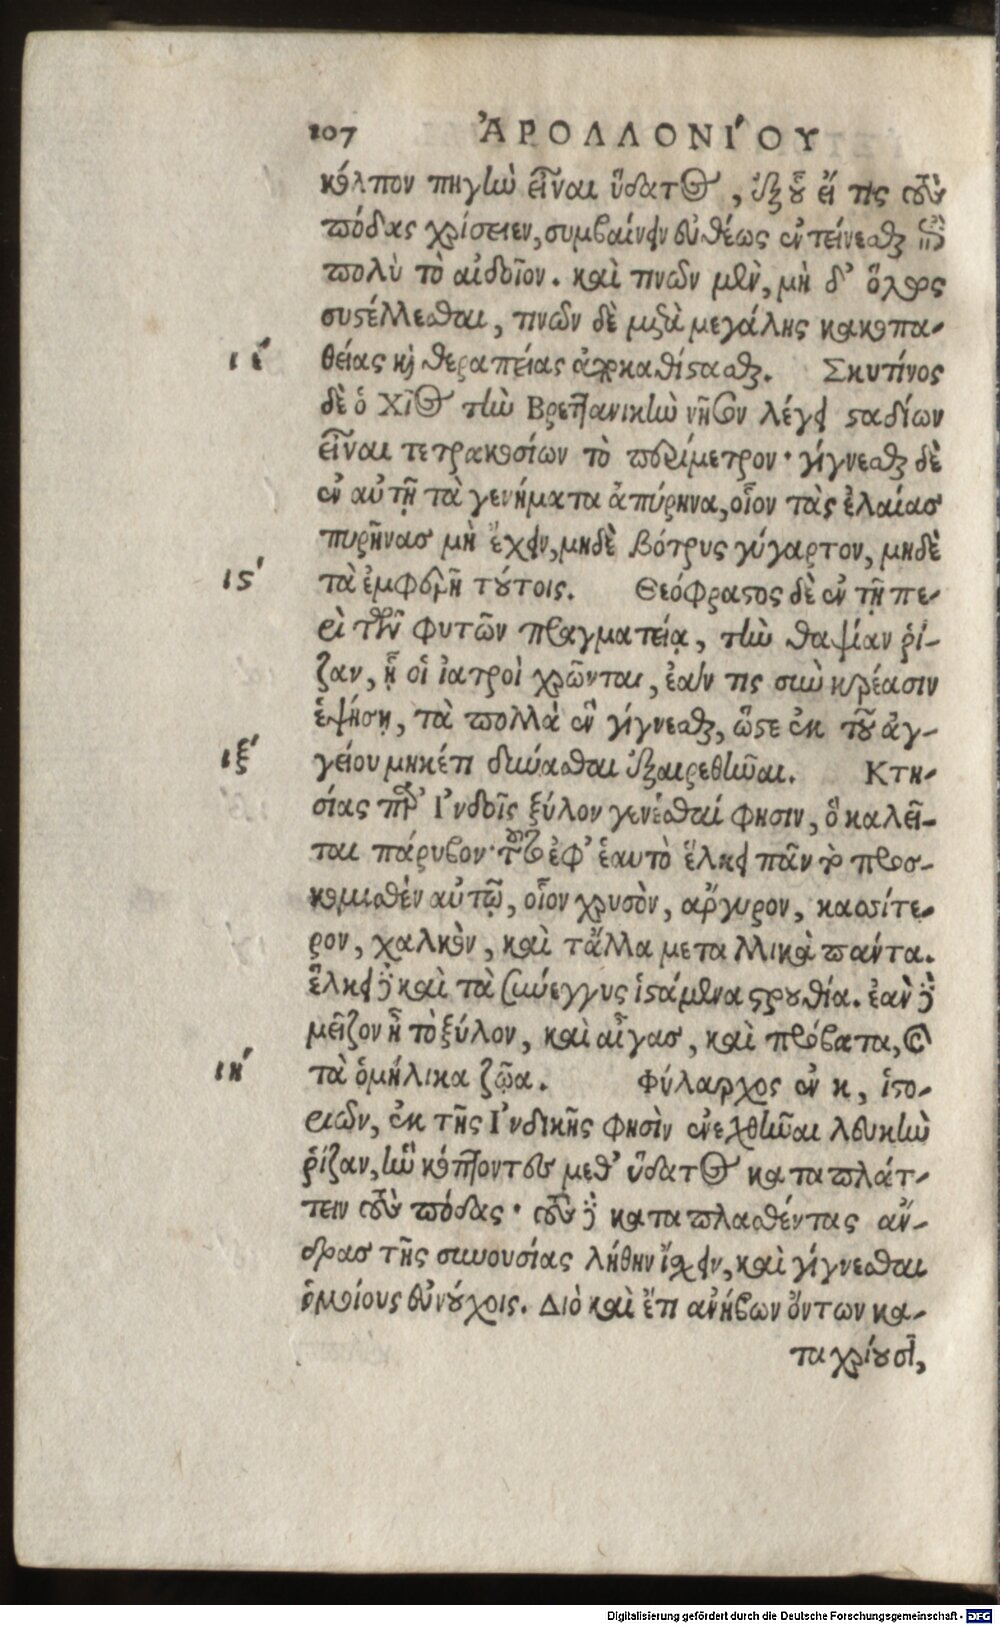 107 ἈΡΟΛΛΟΝΊΟΥ
κόλπον πηγὴν εἶναι ὕδατος, ἐξ οὗ εἴ τις τοὺς
πόδας χρίσειεν, συμβαίνειν εὐθέως ἐντείνεσθαι ἐπὶ
πολὺ τὸ αἰδοῖον. καὶ τινῶν μὲν, μὴ δ' ὅλως
συστέλλεσθαι, τινῶν δὲ μετὰ μεγάλης κακοπα-
ιέ θείας καὶ θεραπείας ἀποκαθίστασθαι. Σκυτίνος
δὲ ὁ Χῖος τὴν Βρεττανικὴν νῆσον λέγει σταδίων
εἶναι τετρακοσίων τὸ περίμετρον· γίγνεσθαι δὲ
ἐν αὐτῇ τὰ γενήματα ἀπύρηνα, οἷον τὰς ἐλαίας
πυρῆνας μὴ ἔχειν, μηδὲ βότρυς γύγαρτον, μηδὲ
ιϛ' τὰ ἐμφερῆ τούτοις. Θεόφραστος δὲ ἐν τῇ πε-
ρὶ τῶν φυτῶν πραγματείᾳ, τὴν θαψίαν ῥί-
ζαν, ᾗ οἱ ἰατροὶ χρῶνται, ἐάν τις σὺν κρέασιν
ἑψήσῃ, τὰ πολλὰ ἓν γίγνεσθαι, ὥστε ἐκ τοῦ ἀγ-
ιξ' γείου μηκέτι δύνασθαι ἐξαιρεθῆναι. Κτη-
σίας παρ' Ἰνδοῖς ξύλον γενέσθαί φησιν, ὃ καλεῖ-
ται πάρυβον· τοῦτο ἐφ' ἑαυτὸ ἕλκει πᾶν τὸ προσ-
κομισθὲν αὐτῷ, οἷον χρυσὸν, ἄργυρον, κασσίτε-
ρον, χαλκὸν, καὶ τἄλλα μεταλλικὰ πάντα.
ἕλκει δὲ καὶ τὰ σύνεγγυς ἱστάμενα στρουθία. ἐὰν δὲ
μεῖζον ᾖ τὸ ξύλον, καὶ αἶγας, καὶ πρόβατα, καὶ
ιή τὰ ὁμήλικα ζῷα. Φύλαρχος ἐν κ, ἱστο-
ριῶν, ἐκ τῆς Ἰνδικῆς φησὶν ἐνεχθῆναι λευκὴν
ῥίζαν, ἣν κόπτοντας μεθ' ὕδατος καταπλάτ-
τειν τοὺς πόδας· τοὺς δὲ καταπλασθέντας ἄν-
δρας τῆς συνουσίας λήθην ἴσχειν, καὶ γίγνεσθαι
ὁμοίους εὐνούχοις. Διὸ καὶ ἔτι ἀνήβων ὄντων κα-
ταχρίουσι,
Digitalisierung gefördert durch die Deutsche Forschungsgemeinschaft - DFG